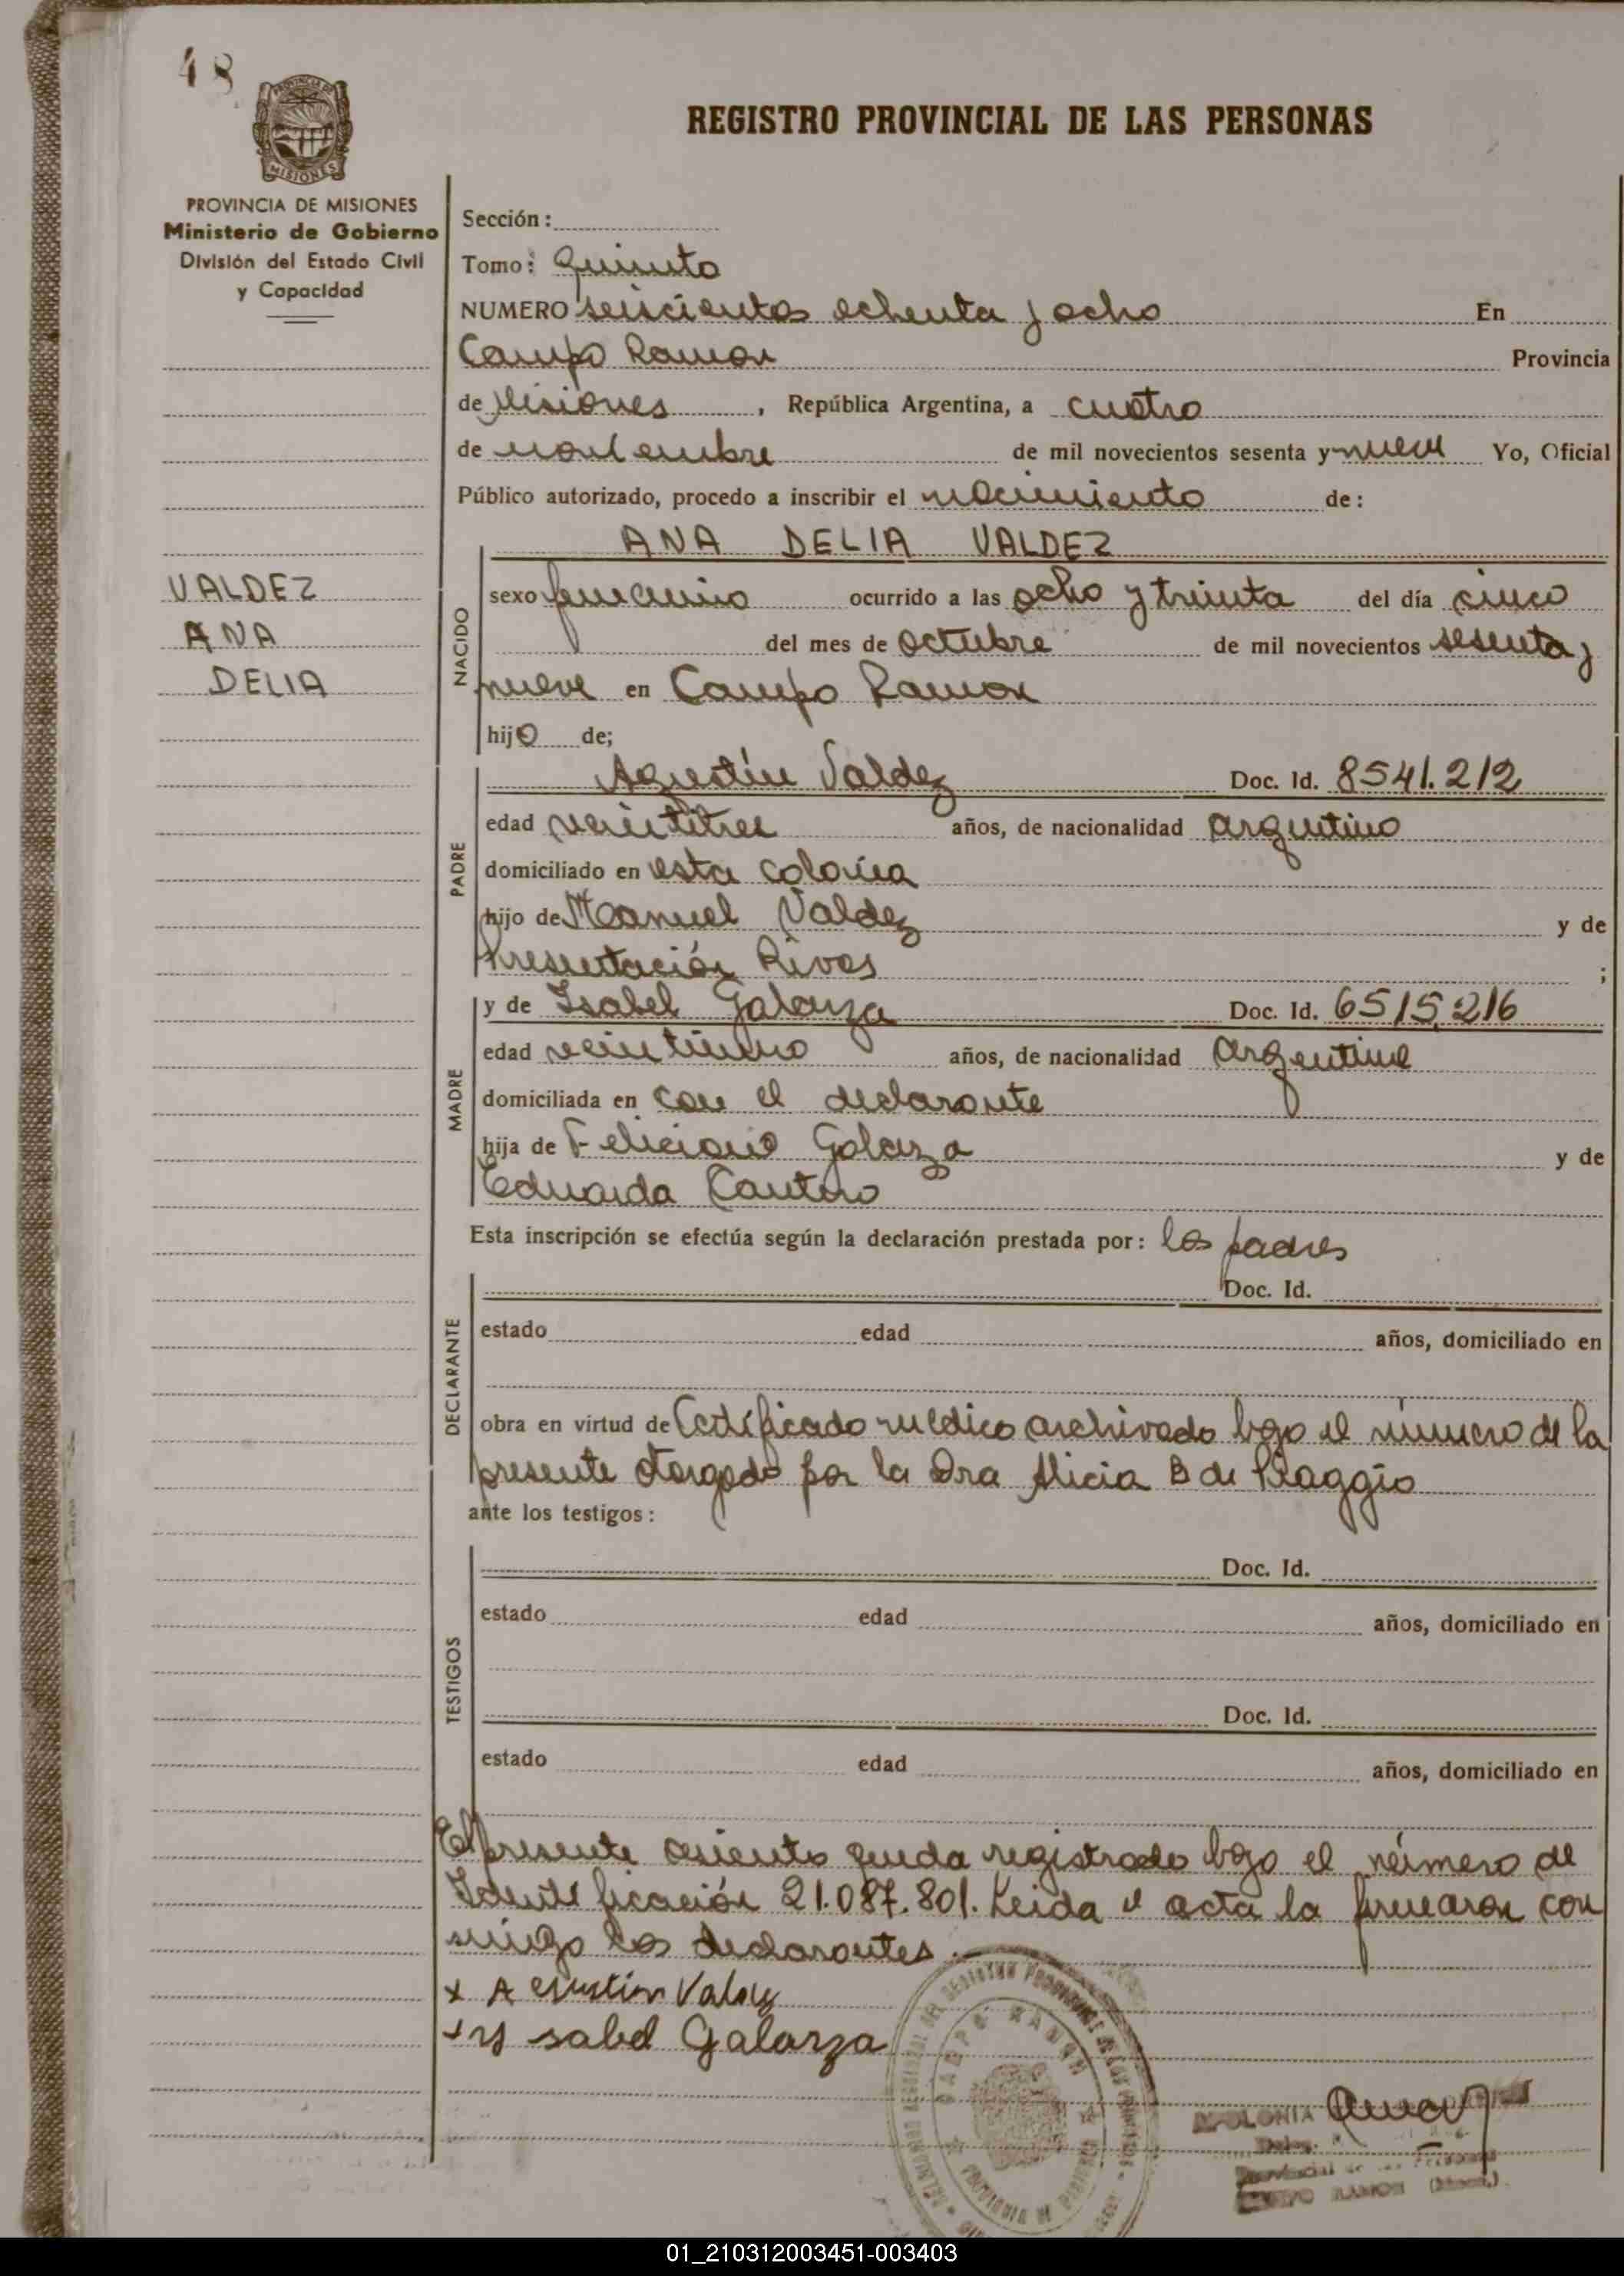 48
REGISTRO PROVINCIAL DE LAS PERSONAS
MISIONES
PROVINCIA DE MISIONES
Ministerio de Gobierno
División del Estado Civil
y Capacidad
Sección:
Tomo: Quinto
NUMERO seiscientos ochenta y ocho En
Campo Ramon Provincia
de Misiones, República Argentina, a cuatro
de noviembre de mil novecientos sesenta y nueve Yo, Oficial
Público autorizado, procedo a inscribir el nacimiento de:
ANA DELIA VALDEZ
VALDEZ
ANA
DELIA
NACIDO
sexo femenino ocurrido a las ocho y treinta del día cinco
del mes de octubre de mil novecientos sesenta y
nueve en Campo Ramon
hijo de;
PADRE
Agustín Valdez Doc. Id. 8541.212
edad veintitres años, de nacionalidad argentino
domiciliado en esta colonia
hijo de Manuel Valdez y de
Presentación Rivas ;
MADRE
y de Isabel Galarza Doc. Id. 6515.216
edad veintiuno años, de nacionalidad argentina
domiciliada en con el declarante
hija de Feliciano Galarza y de
Eduarda Cantero
Esta inscripción se efectúa según la declaración prestada por: los padres
DECLARANTE
Doc. Id.
estado edad años, domiciliado en
obra en virtud de Certificado médico archivado bajo el número de la
presente otorgado por la Dra Alicia B de Piaggio
ante los testigos:
TESTIGOS
Doc. Id.
estado edad años, domiciliado en
Doc. Id.
estado edad años, domiciliado en
El presente asiento queda registrado bajo el número de
Identificación 21.087.801. Leida el acta la firmaron con
migo los declarantes.-
x Agustín Valdez
x Ysabel Galarza
CAMPO RAMON
PROVINCIA DE MISIONES
APOLONIA
CAMPO RAMON
01_210312003451-003403